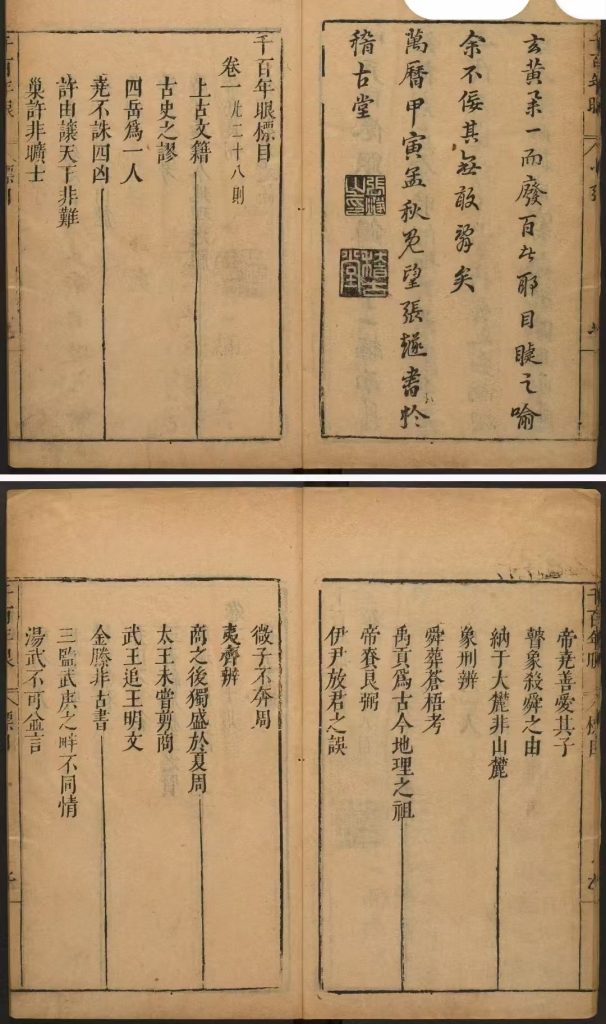 玄黃一而廢百者耶目睫之喻
余不佞其無敢辭矣
萬曆甲寅孟秋既望張燧書於
稽古堂
張燧之印
稽古堂
千百年眼標目
卷一 凡二十八則
上古文籍
古史之謬
四岳爲一人
堯不誅四凶
許由讓天下非難
巢許非曠士
帝堯善愛其子
瞽象殺舜之由
納于大麓非山麓
象刑辨
舜葬蒼梧考
禹貢爲古今地理之祖
帝賚良弼
伊尹放君之誤
微子不奔周
夷齊辨
商之後獨盛於夏周
太王未嘗剪商
武王追王明文
金縢非古書
三監武庚之畔不同情
湯武不可並言